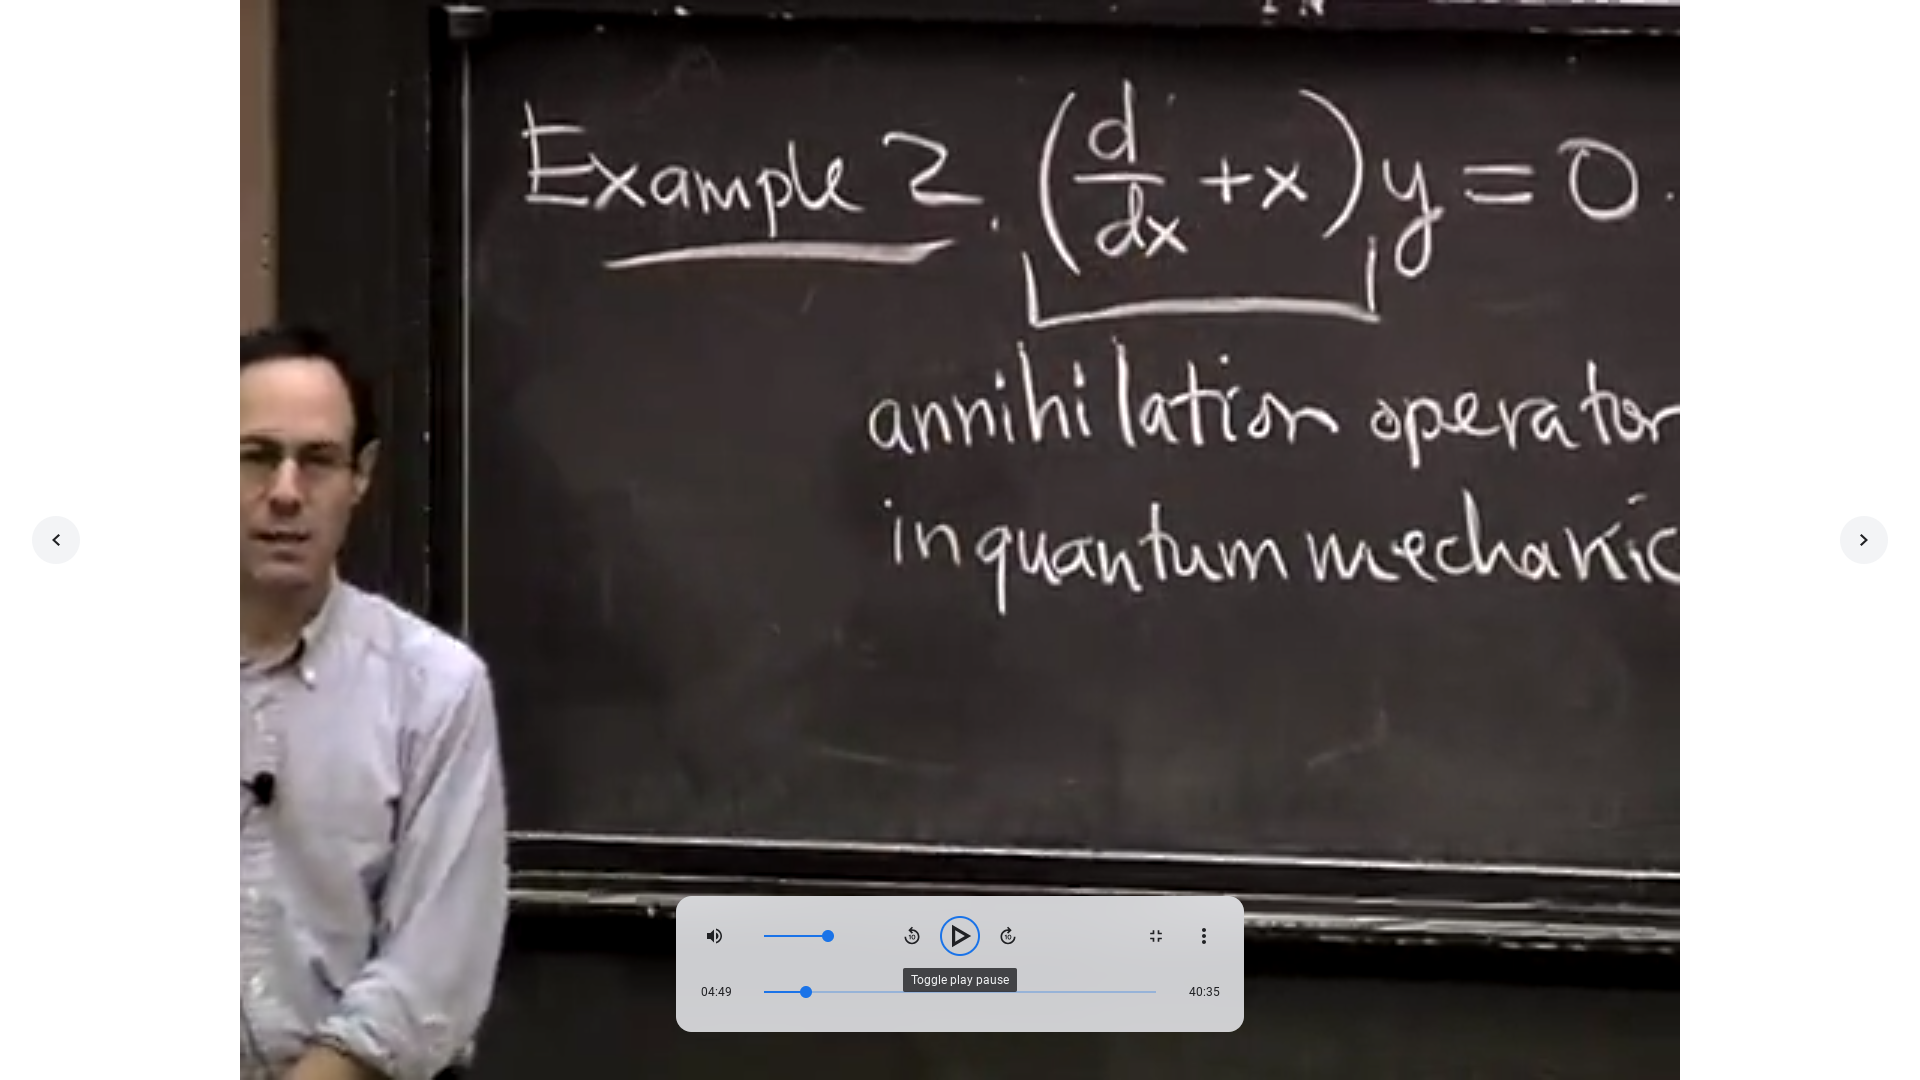 Example 2. (d/dx + x) y = 0.
annihilation operator
in quantum mechanic
Toggle play pause
04:49
40:35